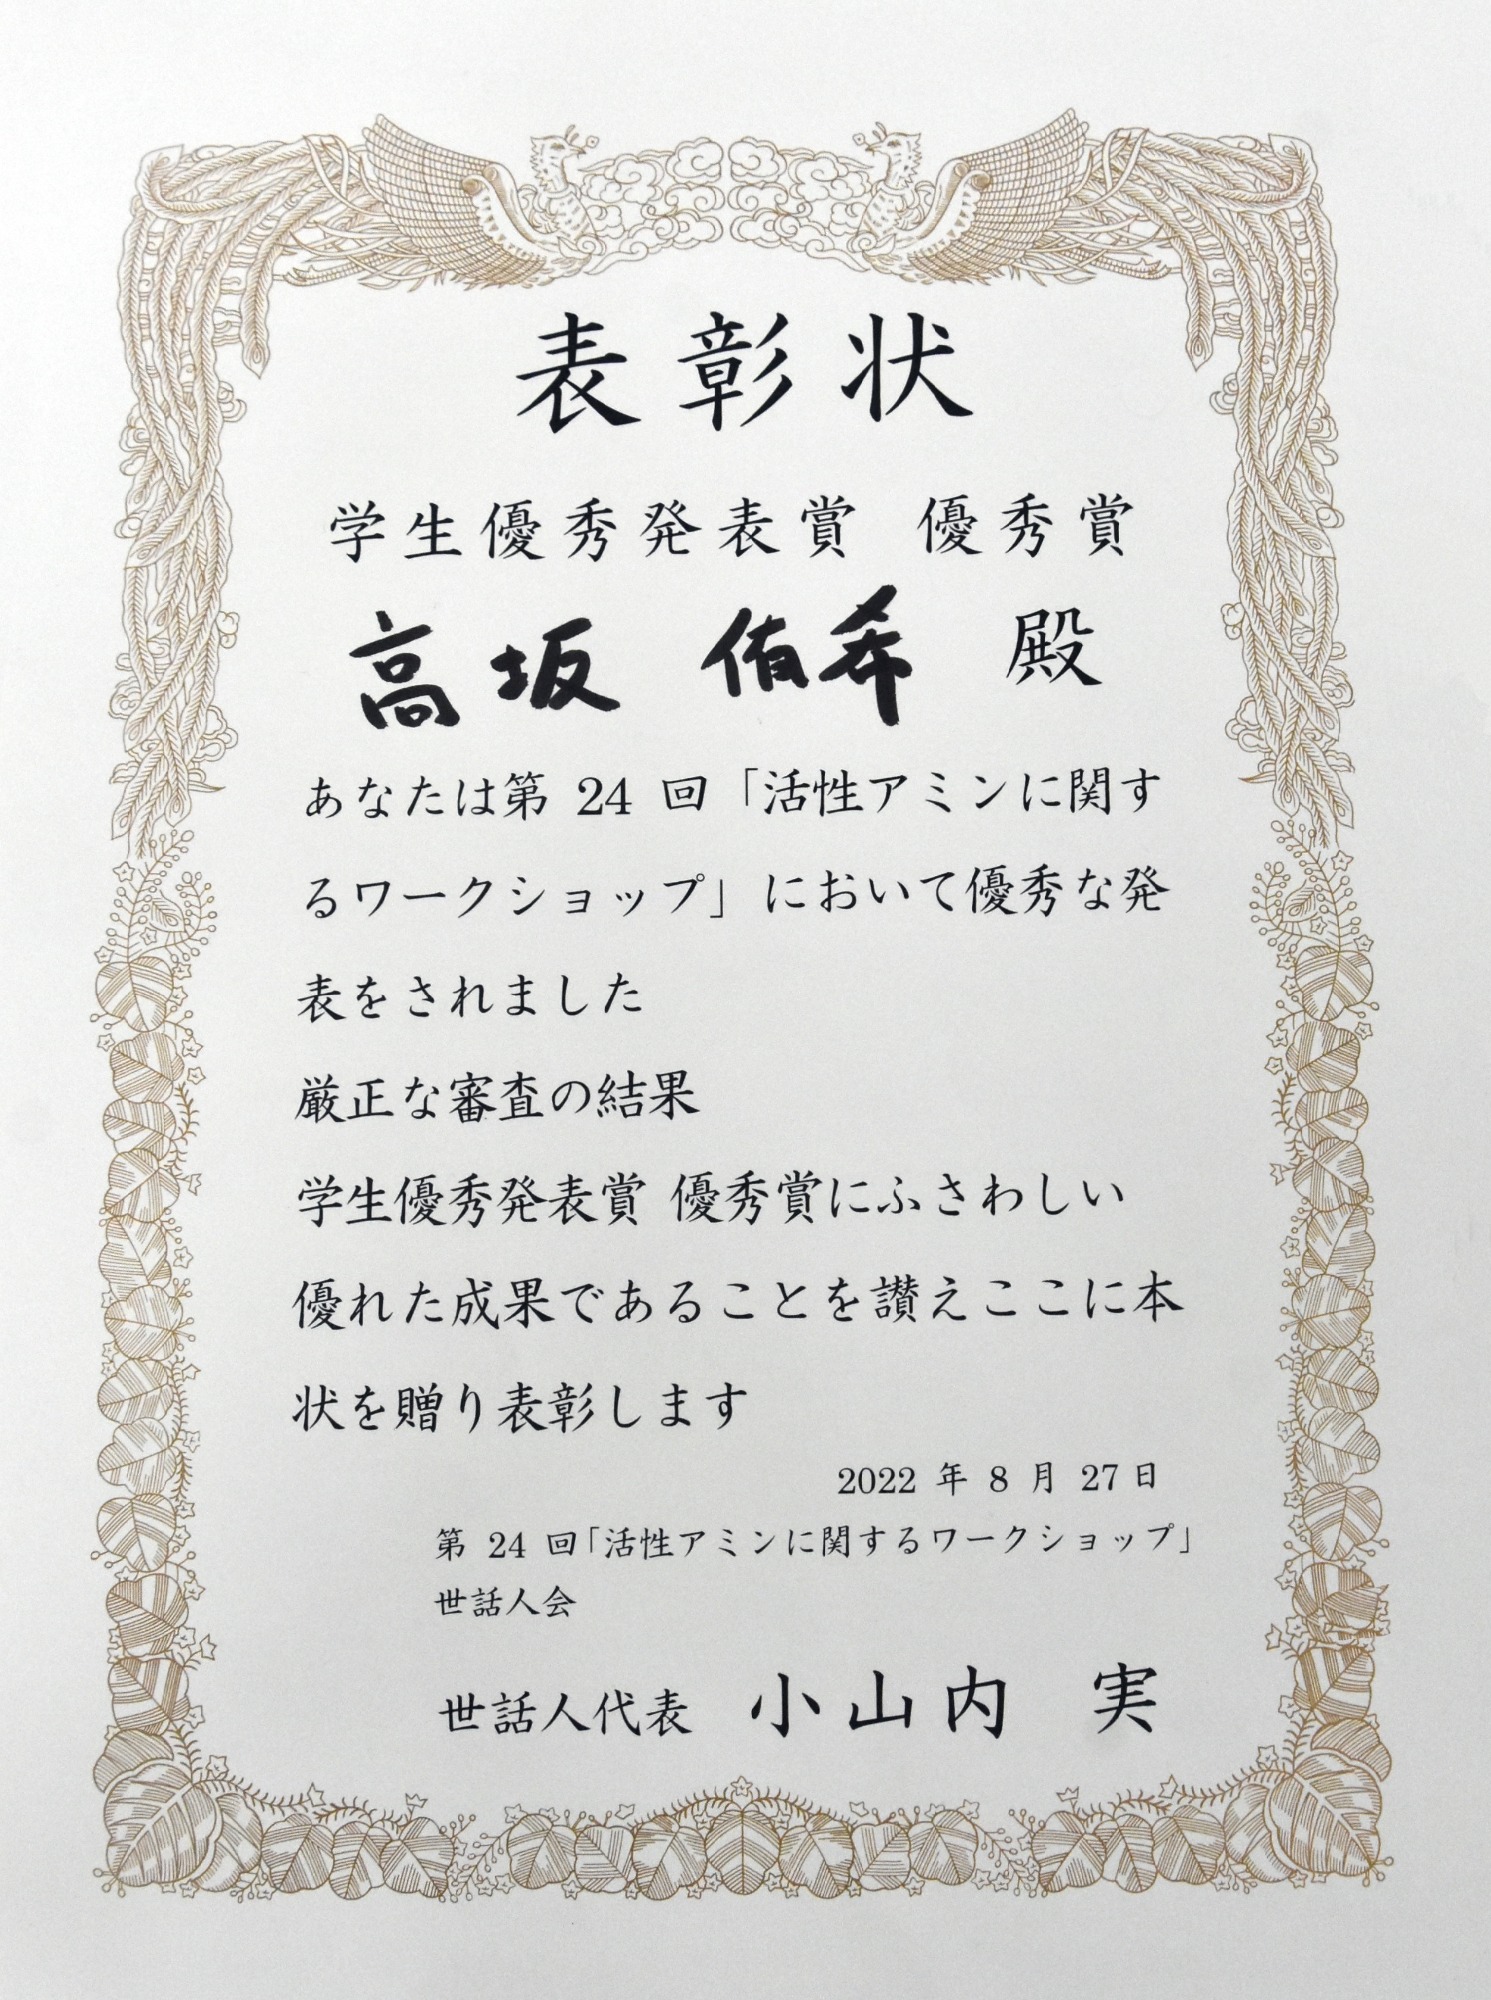 表彰状
学生優秀発表賞 優秀賞
高坂 侑希 殿
あなたは第 24 回「活性アミンに関す
るワークショップ」において優秀な発
表をされました
厳正な審査の結果
学生優秀発表賞 優秀賞にふさわしい
優れた成果であることを讃えここに本
状を贈り表彰します
2022 年 8 月 27 日
第 24 回「活性アミンに関するワークショップ」
世話人会
世話人代表 小山内 実